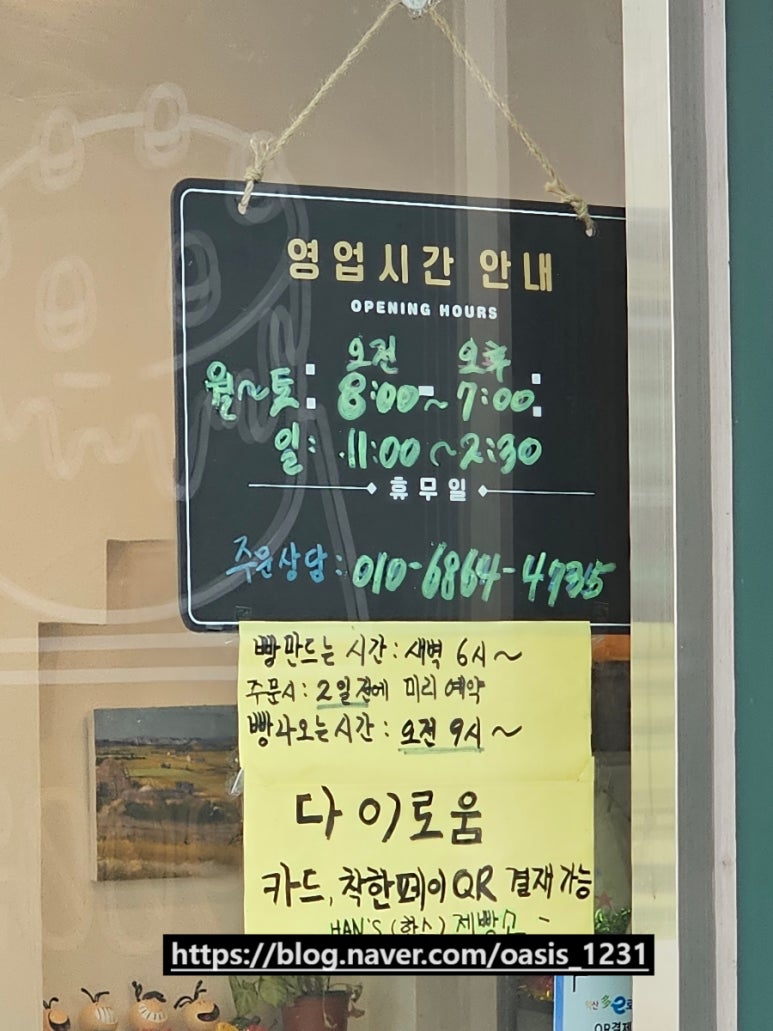 영업시간 안내
OPENING HOURS
오전 오후
월~토: 8:00~7:00
일: 11:00~2:30
휴무일
주문상담: 010-6864-4735
빵만드는 시간: 새벽 6시~
주문시: 2일전에 미리 예약
빵나오는시간: 오전 9시~
다이로움
카드, 착한페이QR 결재가능
HAN'S (한스) 제빵소
https://blog.naver.com/oasis_1231
QR결제